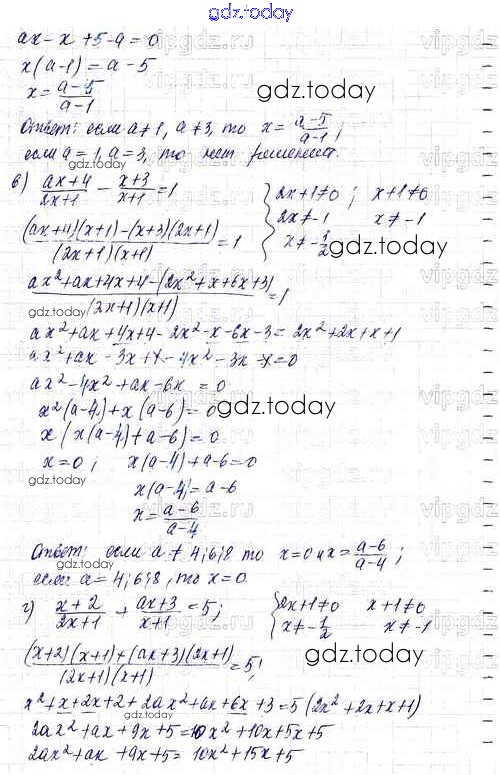 gdz.today
ax - x + 5 - a = 0
x(a-1) = a - 5
x = (a-5)/(a-1)
gdz.today
Ответ: если a ≠ 1, a ≠ 3, то x = (a-5)/(a-1);
если a = 1, a = 3, то нет решений.
gdz.today
в) (ax+4)/(2x+1) - (x+3)/(x+1) = 1 { 2x+1≠0; x+1≠0
2x≠-1 x≠-1
x≠-1/2
((ax+4)(x+1)-(x+3)(2x+1))/((2x+1)(x+1)) = 1
gdz.today
(ax²+ax+4x+4-(2x²+x+6x+3))/((2x+1)(x+1)) = 1
gdz.today
ax²+ax+4x+4-2x²-x-6x-3 = 2x²+2x+x+1
ax²+ax-3x+1-4x²-3x-1=0
ax²-4x²+ax-6x = 0
x²(a-4)+x(a-6)=0
gdz.today
x(x(a-4)+a-6)=0
x=0; x(a-4)+a-6=0
gdz.today
x(a-4)=a-6
x=(a-6)/(a-4)
Ответ: если a ≠ 4;6;8 то x=0 и x=(a-6)/(a-4);
gdz.today
если a=4;6;8, то x=0
г) (x+2)/(2x+1) + (ax+3)/(x+1) = 5; { 2x+1≠0 x+1≠0
x≠-1/2 x≠-1
((x+2)(x+1)+(ax+3)(2x+1))/((2x+1)(x+1)) = 5;
gdz.today
x²+x+2x+2+2ax²+ax+6x+3=5(2x²+2x+x+1)
2ax²+ax+9x+5=10x²+10x+5x+5
2ax²+ax+9x+5=10x²+15x+5
gdz.today
vipgdz.ru